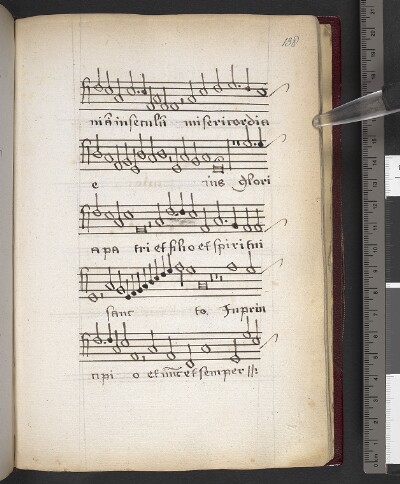 138
niā in seculū misericordia
e ius glori
a pa tri et filio et spiritui
sanc to, In prin
cipi o et nūc et semper